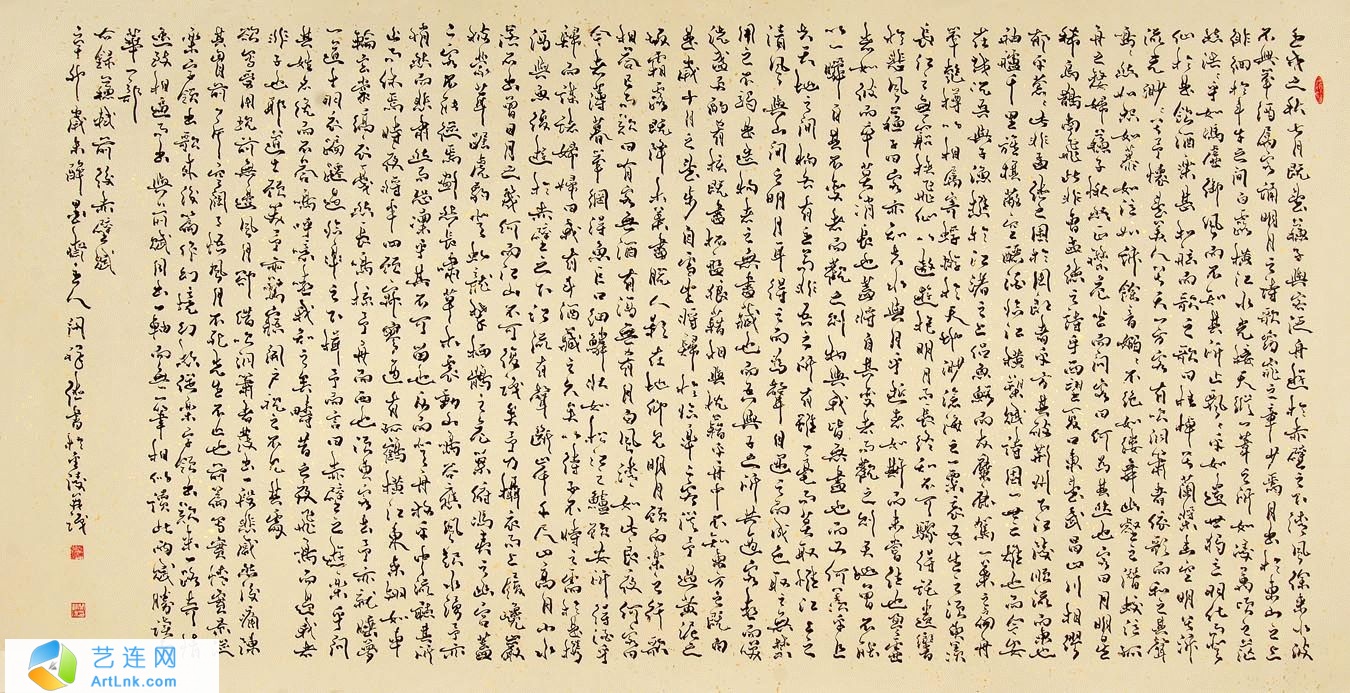 壬戌之秋七月既望蘇子與客泛舟遊於赤壁之下清風徐來水波
不興舉酒屬客誦明月之詩歌窈窕之章少焉月出於東山之上
徘徊於斗牛之間白露橫江水光接天縱一葦之所如凌萬頃之茫
然浩浩乎如馮虛御風而不知其所止飄飄乎如遺世獨立羽化而登
仙於是飲酒樂甚扣舷而歌之歌曰桂棹兮蘭槳擊空明兮泝
流光渺渺兮予懷望美人兮天一方客有吹洞簫者倚歌而和之其聲
嗚嗚然如怨如慕如泣如訴餘音嫋嫋不絕如縷舞幽壑之潛蛟泣孤
舟之嫠婦蘇子愀然正襟危坐而問客曰何為其然也客曰月明星
稀烏鵲南飛此非曹孟德之詩乎西望夏口東望武昌山川相繆
鬱乎蒼蒼此非孟德之困於周郎者乎方其破荊州下江陵順流而東也
舳艫千里旌旗蔽空釃酒臨江橫槊賦詩固一世之雄也而今安
在哉況吾與子漁樵於江渚之上侶魚蝦而友麋鹿駕一葉之扁舟
舉匏樽以相屬寄蜉蝣於天地渺滄海之一粟哀吾生之須臾羨
長江之無窮挾飛仙以遨遊抱明月而長終知不可驟得託遺響
於悲風蘇子曰客亦知夫水與月乎逝者如斯而未嘗往也盈虛
者如彼而卒莫消長也蓋將自其變者而觀之則天地曾不能
以一瞬自其不變者而觀之則物與我皆無盡也而又何羨乎且
夫天地之間物各有主苟非吾之所有雖一毫而莫取惟江上之
清風與山間之明月耳得之而為聲目遇之而成色取之無禁
用之不竭是造物者之無盡藏也而吾與子之所共適客喜而笑
洗盞更酌肴核既盡杯盤狼藉相與枕藉乎舟中不知東方之既白
是歲十月之望步自雪堂將歸於臨皋二客從予過黃泥之
坂霜露既降木葉盡脫人影在地仰見明月顧而樂之行歌
相答已而歎曰有客無酒有酒無肴月白風清如此良夜何客曰
今者薄暮舉網得魚巨口細鱗狀如松江之鱸顧安所得酒乎
歸而謀諸婦婦曰我有斗酒藏之久矣以待子不時之需於是攜
酒與魚復遊於赤壁之下江流有聲斷岸千尺山高月小水
落石出曾日月之幾何而江山不可復識矣予乃攝衣而上履巉巖
披蒙茸踞虎豹登虯龍攀栖鶻之危巢俯馮夷之幽宮蓋
二客不能從焉劃然長嘯草木震動山鳴谷應風起水涌予亦
悄然而悲肅然而恐凜乎其不可留也反而登舟放乎中流聽其所
止而休焉時夜將半四顧寂寥適有孤鶴橫江東來翅如車
輪玄裳縞衣戛然長鳴掠予舟而西也須臾客去予亦就睡夢
一道士羽衣蹁躚過臨皋之下揖予而言曰赤壁之遊樂乎問
其姓名俛而不答嗚呼噫嘻我知之矣疇昔之夜飛鳴而過我者
非子也耶道士顧笑予亦驚寤開戶視之不見其處
欲寫受用現前無邊風月卻借吹洞簫者發出一段悲感然後痛陳
其胸前一片空闊了悟風月不死先生不亡也前篇寫實情實景從
樂字領出歌來後篇作幻境幻想從樂字領出歎來一路奇情
逸致相逼而出與前賦同出一軸而無一筆相似讀此兩賦勝讀
華一部
右錄蘇軾前後赤壁賦
辛卯歲末醉墨齋主人開祥書於金陵并識
艺连网
ArtLnk.com